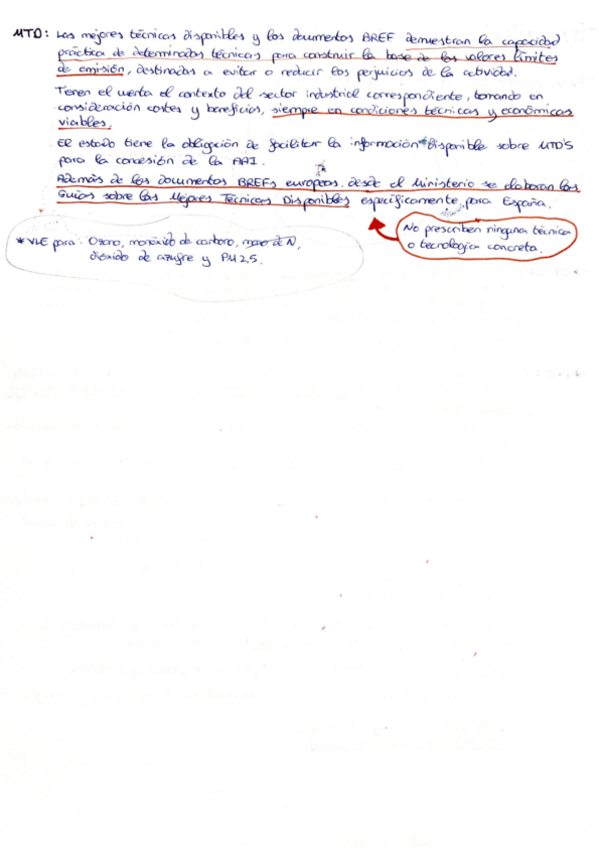 MTD: Las mejores técnicas disponibles y los documentos BREF demuestran la capacidad
práctica de determinadas técnicas para construir la base de los valores límites
de emisión, destinados a evitar o reducir los perjuicios de la actividad.
Tenen el cuenta el contexto del sector industrial correspondiente, tomando en
consideración costes y beneficios, siempre en condiciones técnicas y económicas
viables.
El estado tiene la obligación de facilitar la información disponible sobre MTD'S
para la concesión de la AAI.
Además de los documentos BREFs europeos, desde el Ministerio se elaboran las
Guías sobre las Mejores Técnicas Disponibles específicamente para España.
No prescriben ninguna técnica
o tecnología concreta.
*VLE para: Ozono, monóxido de carbono, de N,
dióxido de azufre y PM 2,5.